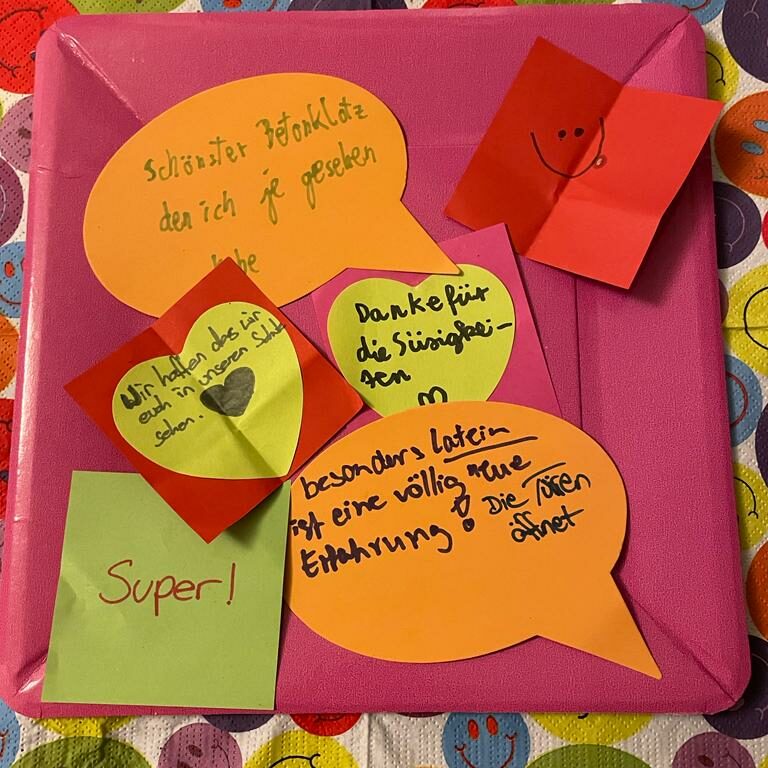 schönster Betonklotz
den ich je gesehen
habe
Danke für
die Süsigkei-
ten
Wir hoffen das wir
euch in unserer Schule
sehen.
besonders latein
ist eine völlig neue
Erfahrung!
Die Türen
öffnet
Super!